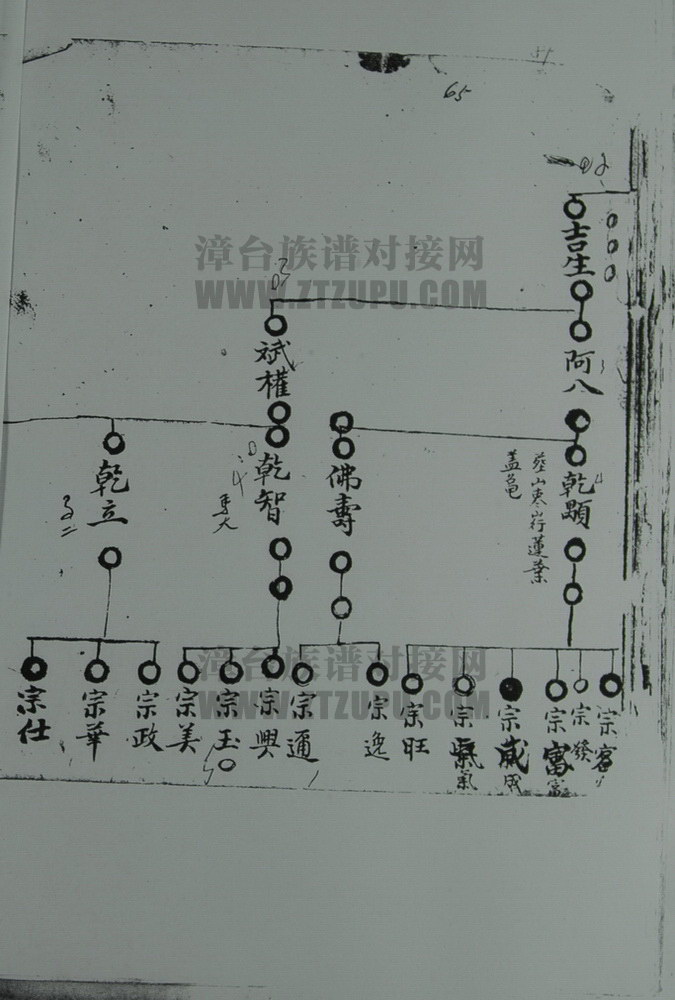 65
漳台族谱对接网
WWW.ZTZUPU.COM
吉生
阿八
斌權
乾顯
葬山寒岽行蓮葉
盖亀
佛壽
乾智
乾立
宗
宗發
宗富
富
宗咸
咸
宗氣
氣
宗旺
宗逸
宗通
宗興
宗玉
宗美
宗政
宗華
宗仕
漳台族谱对接网
WWW.ZTZUPU.COM